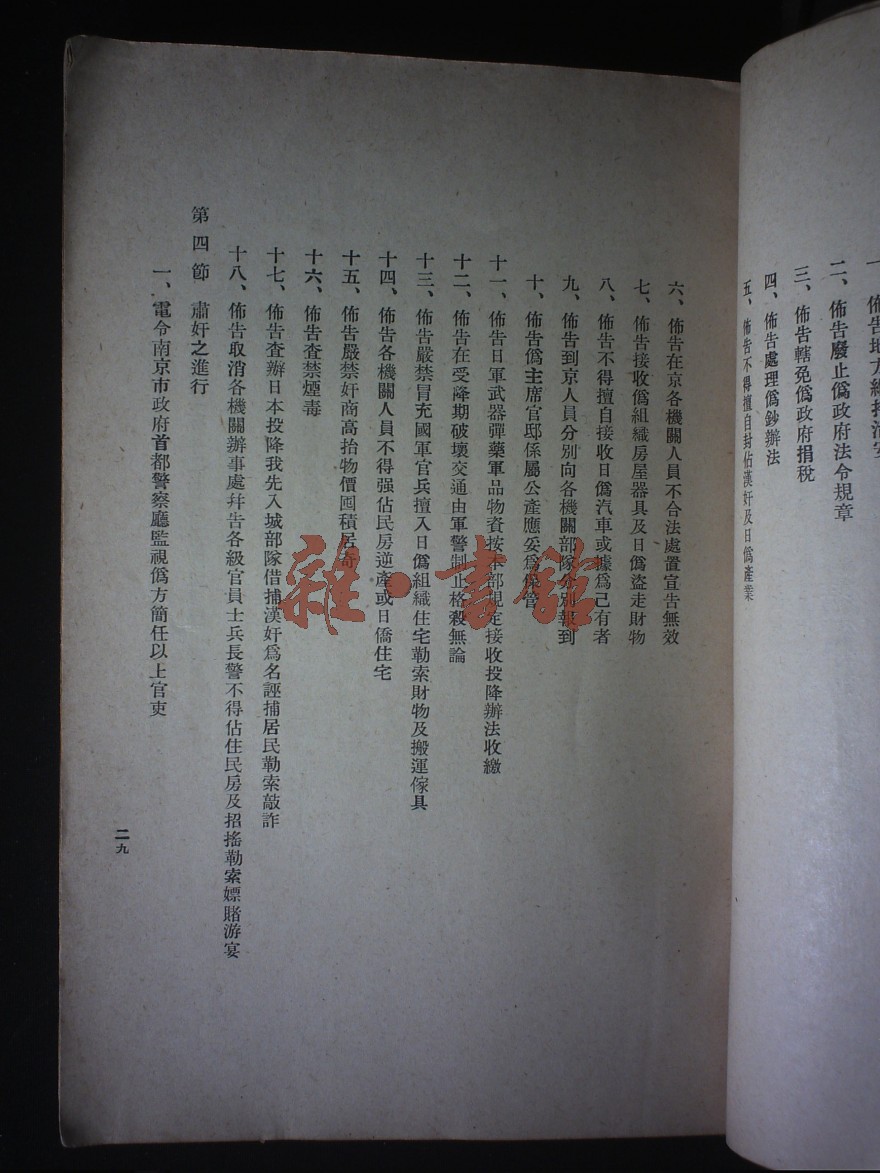 二、佈告廢止僞政府法令規章
三、佈告轄免僞政府捐稅
四、佈告處理僞鈔辦法
五、佈告不得擅自封佔漢奸及日僞產業
六、佈告在京各機關人員不合法處置宣告無效
七、佈告接收僞組織房屋器具及日僞盜走財物
八、佈告不得擅自接收日僞汽車或據爲己有者
九、佈告到京人員分別向各機關部隊分別報到
十、佈告僞主席官邸係屬公產應妥爲保管
十一、佈告日軍武器彈藥軍品物資按本部規定接收投降辦法收繳
十二、佈告在受降期破壞交通由軍警制止格殺無論
十三、佈告嚴禁冒充國軍官兵擅入日僞組織住宅勒索財物及搬運傢具
十四、佈告各機關人員不得强佔民房逆產或日僑住宅
十五、佈告嚴禁奸商高抬物價囤積居奇
十六、佈告查禁煙毒
十七、佈告查辦日本投降我先入城部隊借捕漢奸爲名誣捕居民勒索敲詐
十八、佈告取消各機關辦事處幷告各級官員士兵長警不得佔住民房及招搖勒索嫖賭游宴
第四節 肅奸之進行
一、電令南京市政府首都警察廳監視僞方簡任以上官吏
二九
雜·書館